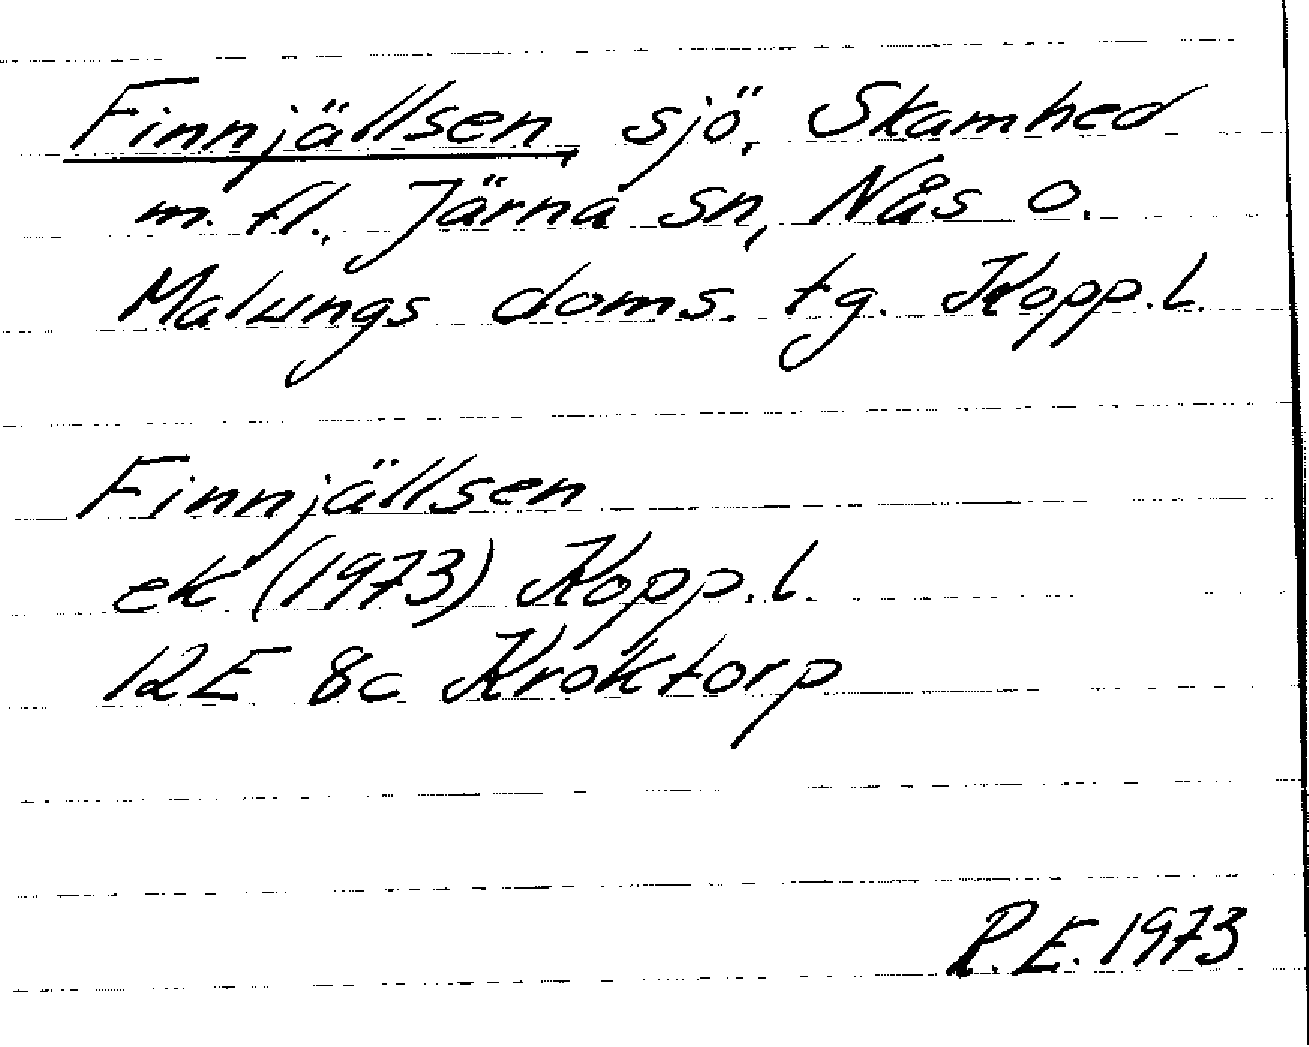 Finnjällsen, sjö, Skamhed
m. fl., Järna sn, Nås o.
Malungs doms. tg. Kopp. l.
Finnjällsen
ek (1973) Kopp. l.
12E 8c Kroktorp
R.E. 1973